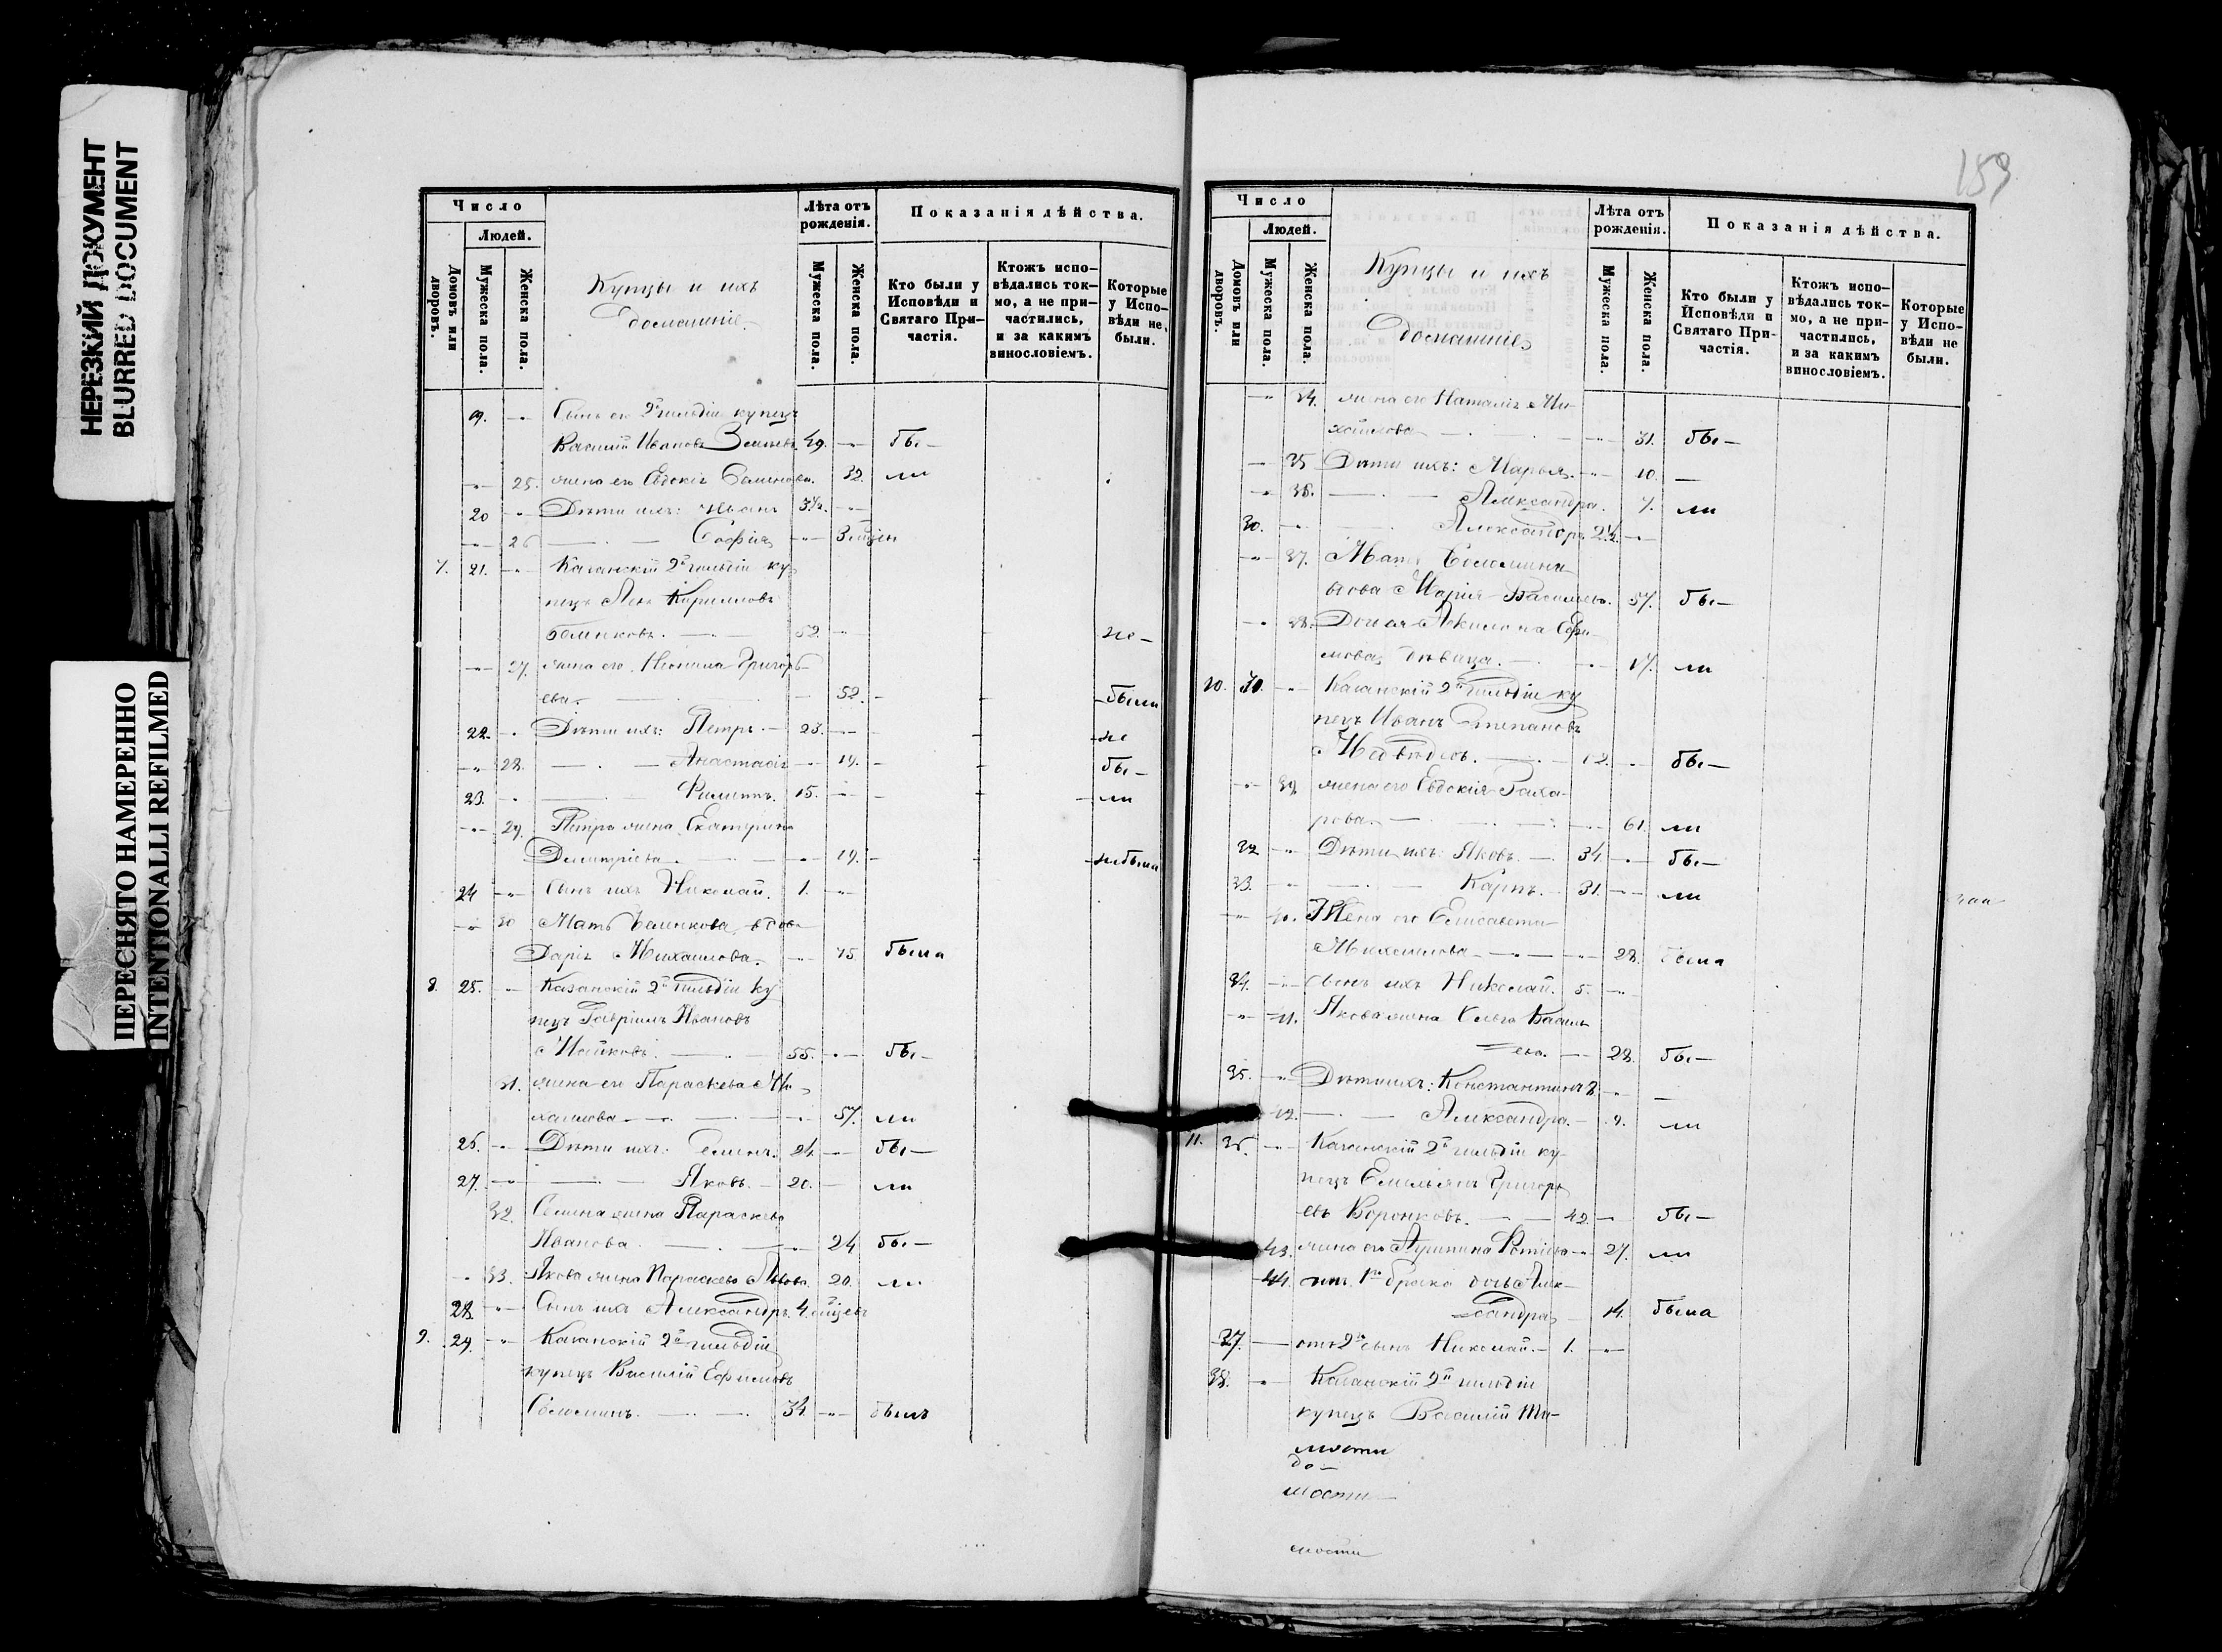 НЕРЕЗКИЙ ДОКУМЕНТ
BLURRED DOCUMENT
ПЕРЕСНЯТО НАМЕРЕННО
INTENTIONALLI REFILMED
Число
Людей.
Домовъ или дворовъ.
Мужеска пола.
Женска пола.
Купцы и ихъ
домашніе.
Лѣта отъ рожденія.
Мужеска пола.
Женска пола.
Показанія дѣйства.
Кто были у Исповѣди и Святаго При-частія.
Ктожъ испо-вѣдались ток-мо, а не при-частились, и за какимъ винословіемъ.
Которые у Испо-вѣди не были.
19. -"- Сынъ его 2й гильдіи купецъ
Василій Ивановъ 49. -"- бы-
-"- 25. жена его Евдокія Семенова. 32. ли
20 -"- Дѣти ихъ: Иванъ 3½. -"-
-"- 26 Софія -"- 3
7. 21. -"- Казанскій 2й гильдіи ку-
пецъ Левъ Кирилловъ
52. -"- не-
-"- 27. жена его Григорь-
ева. 52. - были
22. -"- Дѣти ихъ: Петръ. 23. -"- не
-"- 28. Анастасія -"- 19. бы-
23. -"- Филиппъ. 15. -"- ли
-"- 29. Петра жена Екатерина
Димитріева. -"- 19. небыли
24 -"- сынъ ихъ Николай. 1. -"-
-"- 30 Мать вдова
Дарія Михайлова. -"- 75. была
8. 25. -"- Казанскій 2й гильдіи ку-
пецъ Гавріилъ Ивановъ
55. -"- бы-
31. жена его Параскева Ми-
хайлова -"- 57. ли
26. -"- Дѣти ихъ: 24. -"- бы-
27. -"- Яковъ. 20. - ли
32. Семена жена Параскева
Иванова -"- 24 бы-
-"- 33. Якова жена Параскева Львова. 20. ли
28. -"- Сынъ ихъ Александръ. 4.
9. 29. -"- Казанскій 2й гильдіи
купецъ Василій Ефимовъ
34. -"- былъ
159
Число
Людей.
Домовъ или дворовъ.
Мужеска пола.
Женска пола.
Купцы и ихъ
домашніе
Лѣта отъ рожденія.
Мужеска пола.
Женска пола.
Показанія дѣйства.
Кто были у Исповѣди и Святаго При-частія.
Ктожъ испо-вѣдались ток-мо, а не при-частились, и за какимъ винословіемъ.
Которые у Испо-вѣди не были.
-"- 34. жена его Наталія Ми-
хайлова -"- 31. бы-
-"- 35 Дѣти ихъ: Марья. -"- 10. —
-"- 36. Александра. 7. ли
30. -"- Александръ 2½. -"-
-"- 37. Мать
вдова Марія Васильева. 57. бы-
-"- 38. Дочь ея Акилина Ефи-
мова дѣвица. -"- 17. ли
10. 31. -"- Казанскій 2й гильдіи ку
пецъ Иванъ Степановъ
Медвѣдевъ. -"- бы-
-"- 39. жена его Евдокія Заха-
рова. -"- 61. ли
32 -"- Дѣти ихъ: Яковъ. 34 -"- бы-
33. -"- Карпъ. 31. -"- ли
-"- 40. Жена его Елисавета
Михайлова -"- 28. была
34. -"- Сынъ ихъ Николай. 5. -"-
-"- 41. Якова жена Ольга Василь
=ева. 28. бы-
35. -"- Дѣти ихъ: Константинъ 8. -"- —
42. Александра. 9. ли
11. 36. -"- Казанскій 2й гильдіи ку-
пецъ Емельянъ Григорь
евъ Воронковъ. 42. - бы-
43. жена его -"- 27. ли
44. отъ 1го брака дочь Алек-
=сандра 14. была
37. — отъ 2го сынъ Николай. 1. -"-
38. -"- Казанскій 2й гильдіи
купецъ Василій